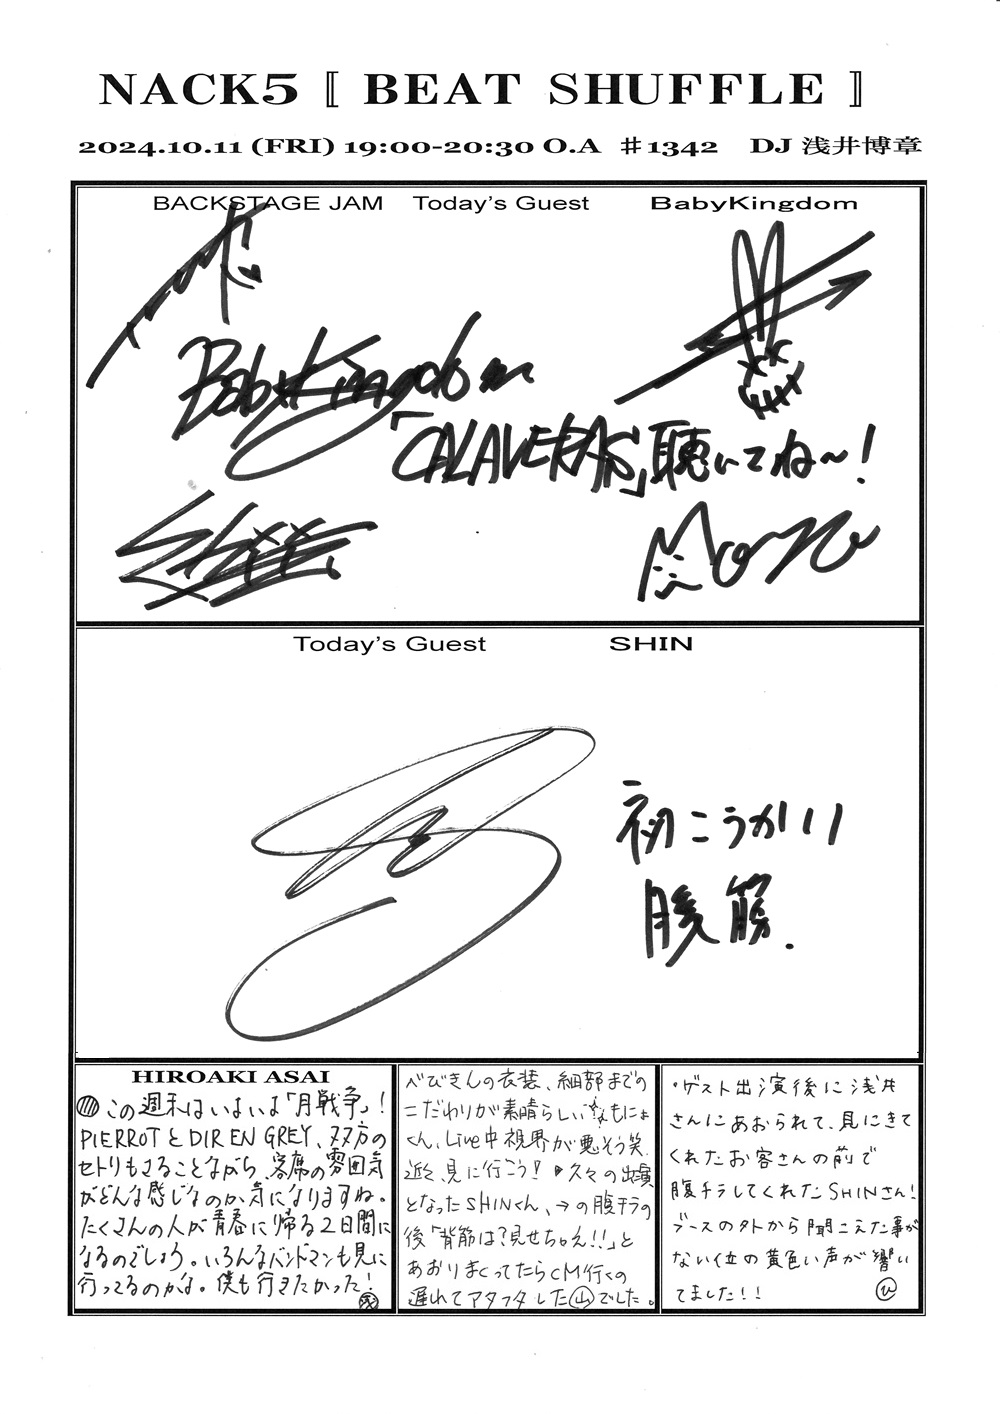 NACK5 〚 BEAT SHUFFLE 〛
2024.10.11 (FRI) 19:00-20:30 O.A ＃1342 DJ 浅井博章
BACKSTAGE JAM Today's Guest BabyKingdom
BabyKingdom
「CALAVERAS」聴いてね〜！
Today's Guest SHIN
初こうかい!!
腹筋.
HIROAKI ASAI
この週末はいよいよ「月戦争」！
PIERROTとDIR EN GREY、双方の
セトリもさることながら、客席の雰囲気
がどんな感じなのか気になりますね。
たくさんの人が青春に帰る2日間に
なるのでしょう。いろんなバンドマンも見に
行ってるのかな。僕も行きたかった！
浅
べびきんの衣装、細部までの
こだわりが素晴らしい
くん、Live中視界が悪そう笑
近々、見に行こう！ 久々の出演
となったSHINくん、→の腹チラの
後「背筋は？見せちゃえ!!」と
あおりまくってたらCM行くの
遅れてアタフタした山でした。
・ゲスト出演後に浅井
さんにあおられて、見にきて
くれたお客さんの前で
腹チラしてくれたSHINさん！
ブースの外から聞こえた事が
ない位の黄色い声が響い
てました！！
ひ